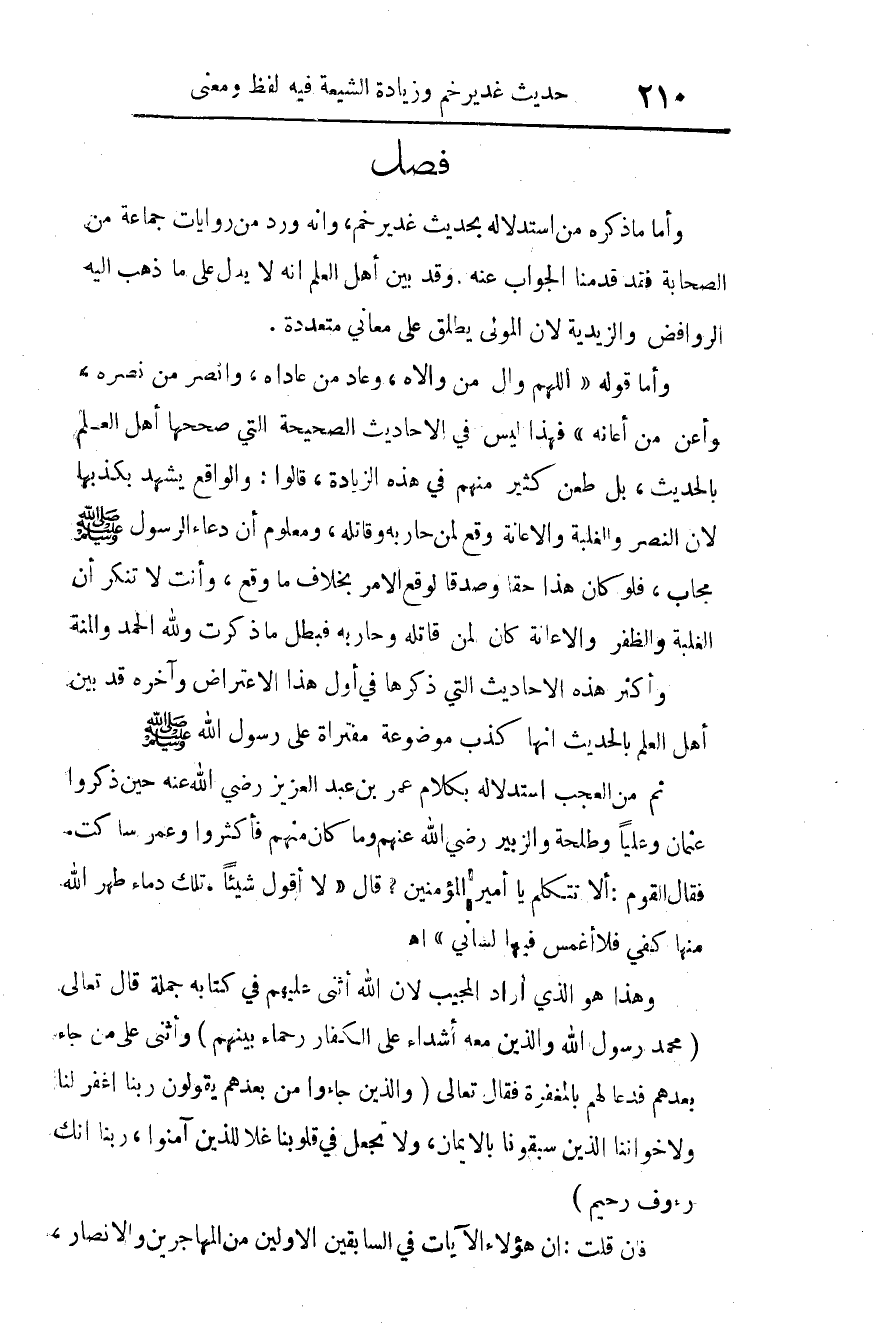 ٢١٠ حديث غدير خم وزيادة الشيعة فيه لفظ ومعنى
فصل
وأما ماذكره من استدلاله بحديث غدير خم، وانه ورد من روايات جماعة من
الصحابة فقد قدمنا الجواب عنه. وقد بين أهل العلم انه لا يدل على ما ذهب اليه
الروافض والزيدية لان المولى يطلق على معاني متعددة .
وأما قوله « اللهم وال من والاه ، وعاد من عاداه ، وانصر من نصره ،
وأعن من أعانه » فهذا ليس في الاحاديث الصحيحة التي صححها أهل العـلم
بالحديث ، بل طعن كثير منهم في هذه الزيادة ، قالوا : والواقع يشهد بكذبها
لان النصر والغلبة والاعانة وقع لمن حاربه وقاتله ، ومعلوم أن دعاء الرسول ﷺ
مجاب ، فلو كان هذا حقا وصدقا لوقع الامر بخلاف ما وقع ، وأنت لا تنكر أن
الغلبة والظفر والاعانة كان لمن قاتله وحاربه فبطل ماذكرت ولله الحمد والمنة
وأكثر هذه الاحاديث التي ذكرها في أول هذا الاعتراض وآخره قد بين
أهل العلم بالحديث انها كذب موضوعة مفتراة على رسول الله ﷺ
ثم من العجب استدلاله بكلام عمر بن عبد العزيز رضي الله عنه حين ذكروا
عثمان وعلياً وطلحة والزبير رضي الله عنهم وما كان منهم فأكثروا وعمر ساكت.
فقال القوم : ألا تتكلم يا أمير المؤمنين ؟ قال « لا أقول شيئاً . تلك دماء طهر الله
منها كفي فلا أغمس فيها لساني » اه
وهذا هو الذي أراد المجيب لان الله أثنى عليهم في كتابه جملة قال تعالى
( محمد رسول الله والذين معه أشداء على الكفار رحماء بينهم ) وأثنى على من جاء
بعدهم فدعا لهم بالمغفرة فقال تعالى ( والذين جاءوا من بعدهم يقولون ربنا اغفر لنا
ولاخواننا الذين سبقونا بالايمان، ولا تجعل في قلوبنا غلا للذين آمنوا ، ربنا انك
رءوف رحيم )
فان قلت : ان هؤلاء الآيات في السابقين الاولين من المهاجرين والانصار ،